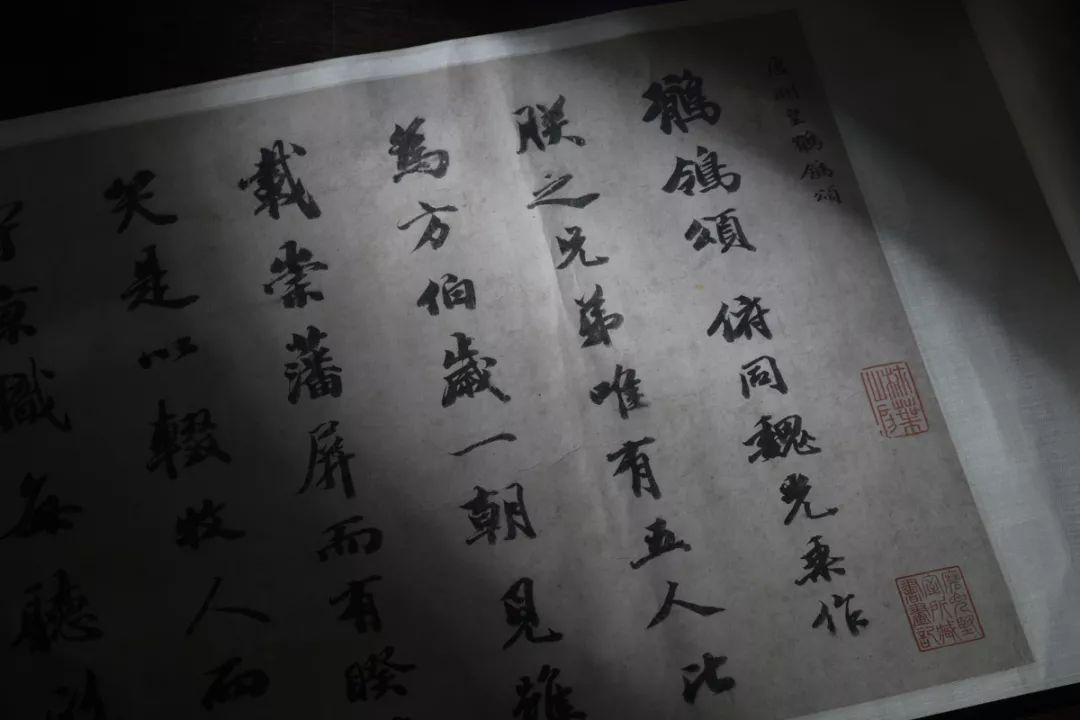 唐明皇鶺鴒頌
鶺鴒頌 俯同魏光乘作
朕之兄弟唯有五人比
為方伯歲一朝見雖
載崇藩屏而有睽
笑是以輟牧人而
京職每聽